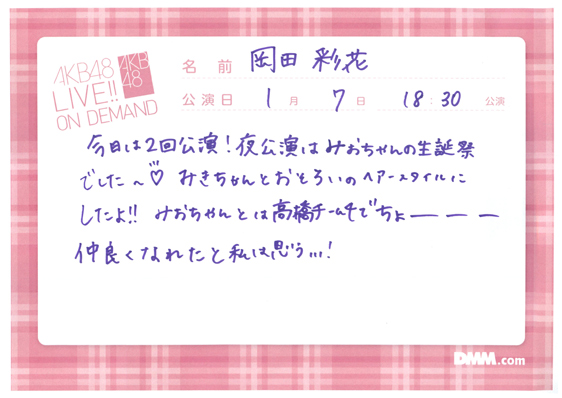 AKB48
LIVE!!
ON DEMAND
AKB
48
名前 岡田彩花
公演日 1月 7日 18:30 公演
今日は2回公演!夜公演はみおちゃんの生誕祭
でした〜♡ みきちゃんとおそろいのヘアースタイルに
したよ!! みおちゃんとは高橋チーム4でちょーーー
仲良くなれたと私は思う...!
DMM.com